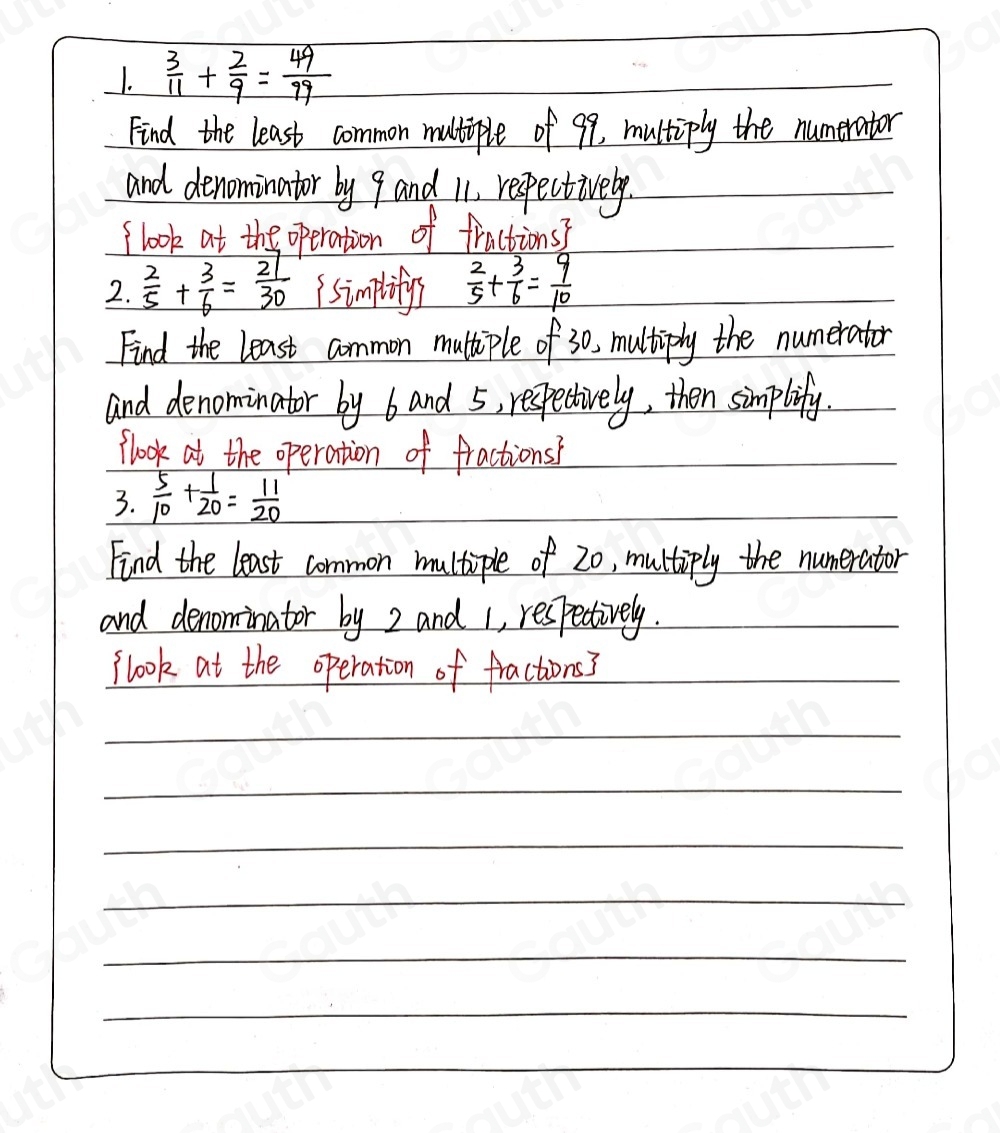 1. 3/11 + 2/9 = 49/99
Find the least common multiple of 99, multiply the numerator
and denominator by 9 and 11, respectively.
{look at the operation of fractions}
2. 2/5 + 3/6 = 27/30 {simplify} 2/5 + 3/6 = 9/10
Find the least common multiple of 30, multiply the numerator
and denominator by 6 and 5, respectively, then simplify.
{look at the operation of fractions}
3. 5/10 + 1/20 = 11/20
Find the least common multiple of 20, multiply the numerator
and denominator by 2 and 1, respectively.
{look at the operation of fractions}